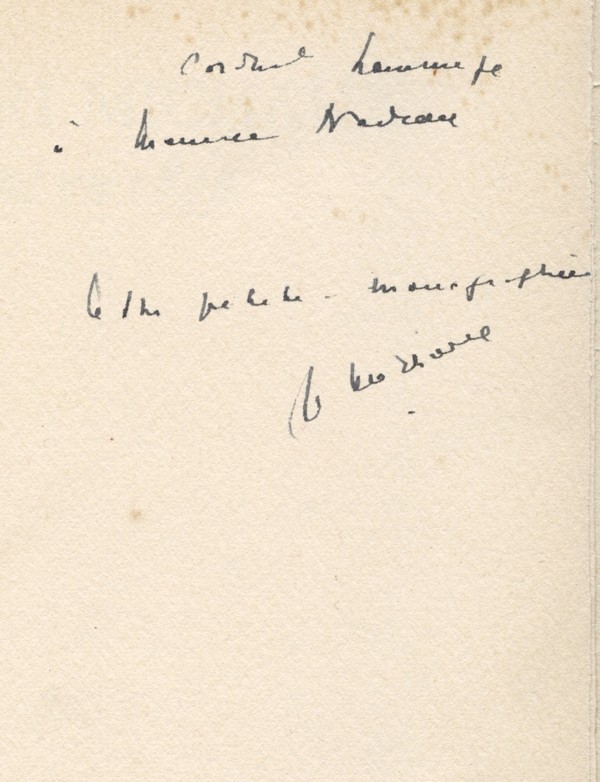 Cordial hommage
à Maurice Nadeau
cette petite monographie